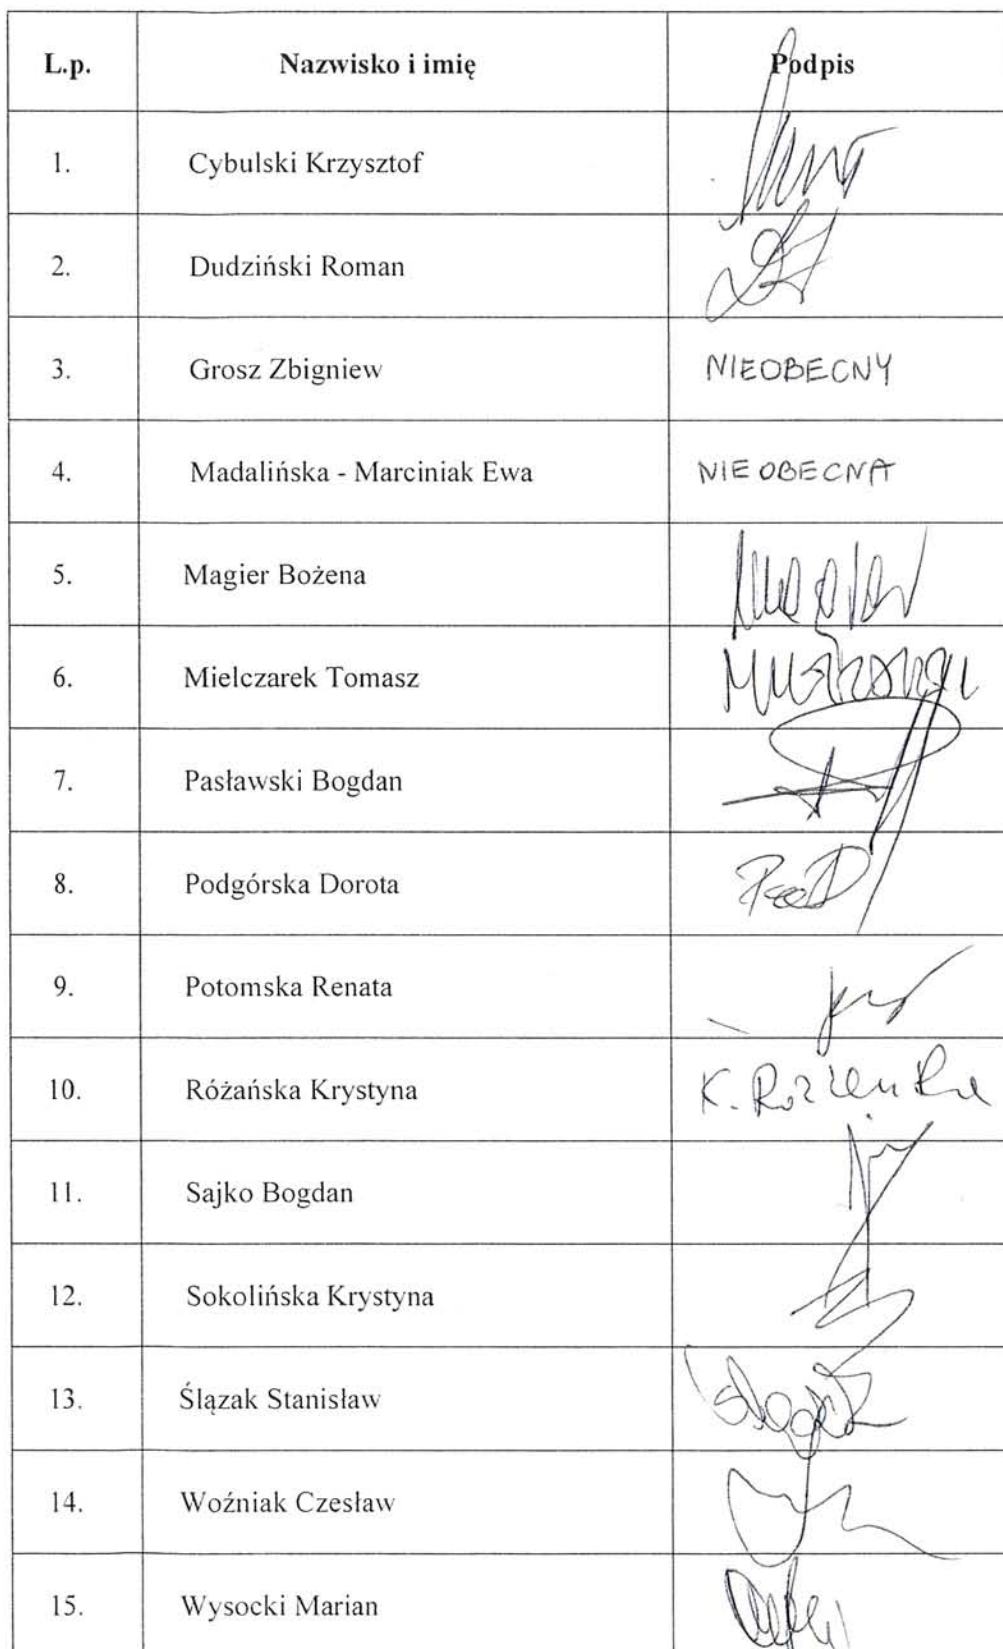 L.p. Nazwisko i imię Podpis
1. Cybulski Krzysztof
2. Dudziński Roman
3. Grosz Zbigniew NIEOBECNY
4. Madalińska - Marciniak Ewa NIEOBECNA
5. Magier Bożena
6. Mielczarek Tomasz
7. Pasławski Bogdan
8. Podgórska Dorota
9. Potomska Renata
10. Różańska Krystyna K.
11. Sajko Bogdan
12. Sokolińska Krystyna
13. Ślązak Stanisław
14. Woźniak Czesław
15. Wysocki Marian